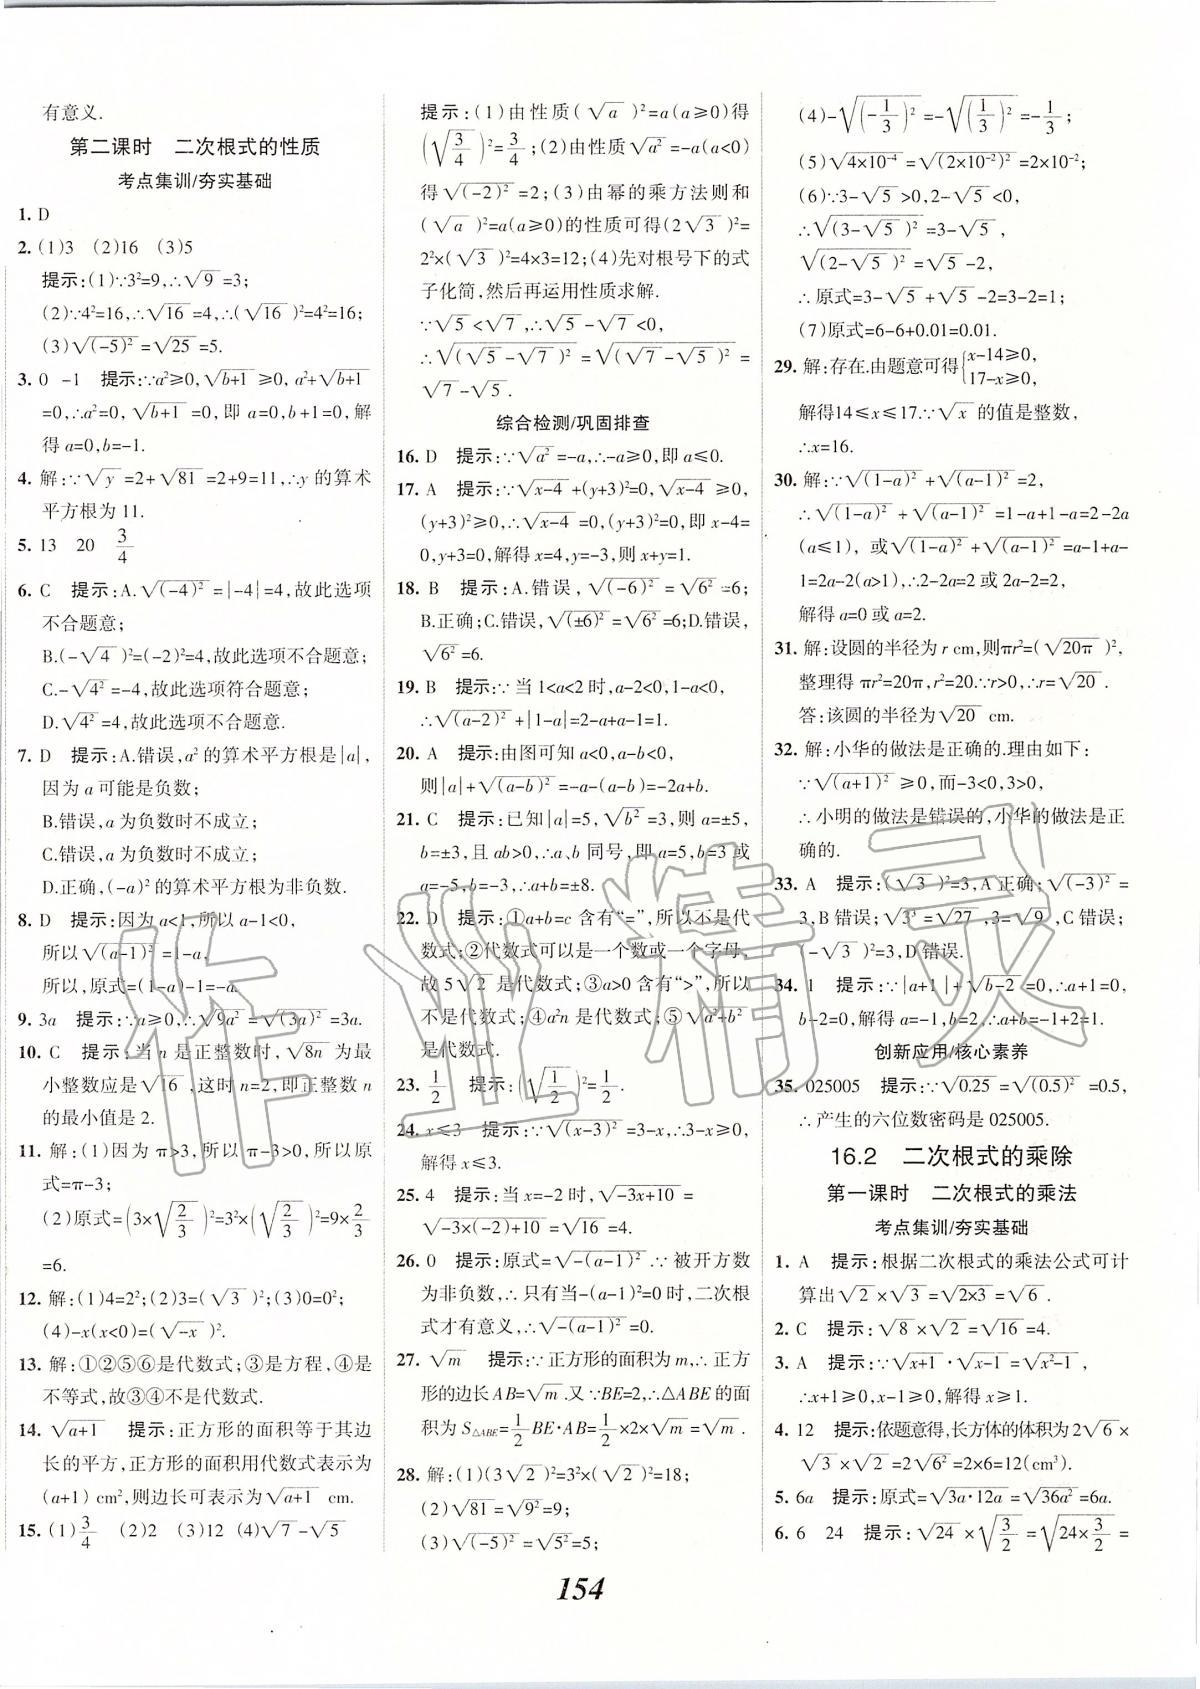 有意义.
第二课时　二次根式的性质
考点集训/夯实基础
1. D
2. (1)3　(2)16　(3)5
提示:(1)∵3²=9,∴√9=3;
(2)∵4²=16,∴√16=4,∴(√16)²=4²=16;
(3)√(-5)²=√25=5.
3. 0　-1　提示:∵a²≥0,√b+1≥0, a²+√b+1
=0,∴a²=0,√b+1=0,即 a=0,b+1=0,解
得 a=0,b=-1.
4. 解:∵√y=2+√81=2+9=11,∴y 的算术
平方根为 11.
5. 13　20　3/4
6. C　提示:A.√(-4)²=|-4|=4,故此选项
不合题意;
B.(-√4)²=(-2)²=4,故此选项不合题意;
C.-√4²=-4,故此选项符合题意;
D.√4²=4,故此选项不合题意.
7. D　提示:A.错误,a²的算术平方根是|a|,
因为 a 可能是负数;
B.错误,a 为负数时不成立;
C.错误,a 为负数时不成立;
D.正确,(-a)²的算术平方根为非负数.
8. D　提示:因为 a<1,所以 a-1<0,
所以√(a-1)²=1-a,
所以,原式=(1-a)-1=-a.
9. 3a　提示:∵a≥0,∴√9a²=√(3a)²=3a.
10. C　提示:当 n 是正整数时,√8n 为最
小整数应是√16,这时 n=2,即正整数 n
的最小值是 2.
11. 解:(1)因为 π>3,所以 π-3>0,所以原
式=π-3;
(2)原式=(3×√2/3)²=3²×(√2/3)²=9×2/3
=6.
12. 解:(1)4=2²;(2)3=(√3)²;(3)0=0²;
(4)-x(x<0)=(√-x)².
13. 解:①②⑤⑥是代数式;③是方程,④是
不等式,故③④不是代数式.
14. √a+1　提示:正方形的面积等于其边
长的平方,正方形的面积用代数式表示为
(a+1) cm²,则边长可表示为√a+1 cm.
15. (1)3/4　(2)2　(3)12　(4)√7-√5
提示:(1)由性质(√a)²=a(a≥0)得
(√3/4)²=3/4;(2)由性质√a²=-a(a<0)
得√(-2)²=2;(3)由幂的乘方法则和
(√a)²=a(a≥0)的性质可得(2√3)²=
2²×(√3)²=4×3=12;(4)先对根号下的式
子化简,然后再运用性质求解.
∵√5<√7,∴√5-√7<0,
∴√(√5-√7)²=√(√7-√5)²=
√7-√5.
综合检测/巩固排查
16. D　提示:∵√a²=-a,∴-a≥0,即 a≤0.
17. A　提示:∵√x-4+(y+3)²=0,√x-4≥0,
(y+3)²≥0,∴√x-4=0,(y+3)²=0,即 x-4=
0,y+3=0,解得 x=4,y=-3,则 x+y=1.
18. B　提示:A.错误,√(-6)²=√6²=6;
B.正确;C.错误,√(±6)²=√6²=6;D.错误,
√6²=6.
19. B　提示:∵当 1<a<2 时,a-2<0,1-a<0,
∴√(a-2)²+|1-a|=2-a+a-1=1.
20. A　提示:由图可知 a<0,a-b<0,
则|a|+√(a-b)²=-a-(a-b)=-2a+b.
21. C　提示:已知|a|=5,√b²=3,则 a=±5,
b=±3,且 ab>0,∴a、b 同号,即 a=5,b=3 或
a=-5,b=-3,∴a+b=±8.
22. D　提示:①a+b=c 含有“=”,所以不是代
数式;②代数式可以是一个数或一个字母,
故 5√2 是代数式;③a>0 含有“>”,所以
不是代数式;④a²n 是代数式;⑤√a²+b²
是代数式.
23. 1/2　提示:(√1/2)²=1/2.
24. x≤3　提示:∵√(x-3)²=3-x,∴3-x≥0,
解得 x≤3.
25. 4　提示:当 x=-2 时,√-3x+10=
√-3×(-2)+10=√16=4.
26. 0　提示:原式=√-(a-1)²∵被开方数
为非负数,∴只有当-(a-1)²=0 时,二次根
式才有意义,∴√-(a-1)²=0.
27. √m　提示:∵正方形的面积为 m,∴正方
形的边长 AB=√m.又∵BE=2,∴△ABE 的面
积为 S△ABE=1/2BE·AB=1/2×2×√m=√m.
28. 解:(1)(3√2)²=3²×(√2)²=18;
(2)√81=√9²=9;
(3)√(-5)²=√5²=5;
(4)-√(-1/3)²=-√(1/3)²=-1/3;
(5)√4×10⁻⁴=√(2×10⁻²)²=2×10⁻²;
(6)∵3-√5>0,2-√5<0,
∴√(3-√5)²=3-√5,
√(2-√5)²=√5-2,
∴原式=3-√5+√5-2=3-2=1;
(7)原式=6-6+0.01=0.01.
29. 解:存在.由题意可得{x-14≥0,
17-x≥0,
解得14≤x≤17.∵√x 的值是整数,
∴x=16.
30. 解:∵√(1-a)²+√(a-1)²=2,
∴√(1-a)²+√(a-1)²=1-a+1-a=2-2a
(a≤1), 或√(1-a)²+√(a-1)²=a-1+a-
1=2a-2(a>1),∴2-2a=2 或 2a-2=2,
解得 a=0 或 a=2.
31. 解:设圆的半径为 r cm,则πr²=(√20π)²,
整理得 πr²=20π,r²=20.∵r>0,∴r=√20.
答:该圆的半径为√20 cm.
32. 解:小华的做法是正确的.理由如下:
∵√(a+1)²≥0,而-3<0,3>0,
∴小明的做法是错误的,小华的做法是正
确的.
33. A　提示:(√3)²=3,A 正确;√(-3)²=
3,B 错误;√3³=√27,3=√9,C 错误;
(-√3)²=3,D 错误.
34. 1　提示:∵|a+1|+√b-2=0,∴a+1=0,
b-2=0,解得 a=-1,b=2,∴a+b=-1+2=1.
创新应用/核心素养
35. 025005　提示:∵√0.25=√(0.5)²=0.5,
∴产生的六位数密码是 025005.
16.2　二次根式的乘除
第一课时　二次根式的乘法
考点集训/夯实基础
1. A　提示:根据二次根式的乘法公式可计
算出√2×√3=√2×3=√6.
2. C　提示:√8×√2=√16=4.
3. A　提示:∵√x+1·√x-1=√x²-1,
∴x+1≥0,x-1≥0,解得 x≥1.
4. 12　提示:依题意得,长方体的体积为 2√6×
√3×√2=2√6²=2×6=12(cm³).
5. 6a　提示:原式=√3a·12a=√36a²=6a.
6. 6　24　提示:√24×√3/2=√24×3/2=
154
作业精灵